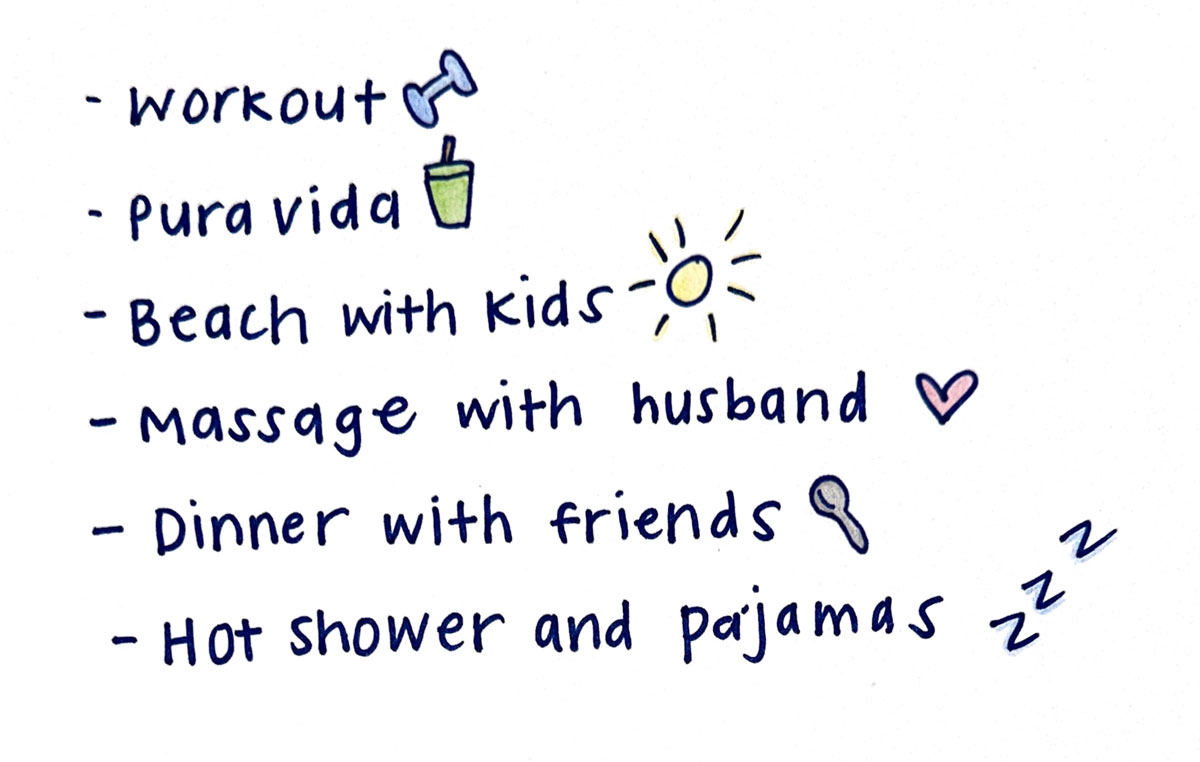 - Workout
- Pura vida
- Beach with kids
- Massage with husband
- Dinner with friends
- Hot shower and pajamas
z z z